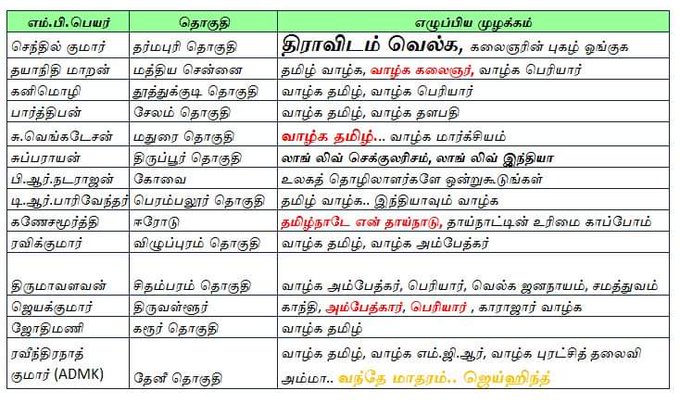 எம்.பி.பெயர் தொகுதி எழுப்பிய முழக்கம்
செந்தில் குமார் தர்மபுரி தொகுதி திராவிடம் வெல்க, கலைஞரின் புகழ் ஓங்குக
தயாநிதி மாறன் மத்திய சென்னை தமிழ் வாழ்க, வாழ்க கலைஞர், வாழ்க பெரியார்
கனிமொழி தூத்துக்குடி தொகுதி வாழ்க தமிழ், வாழ்க பெரியார்
பார்த்திபன் சேலம் தொகுதி வாழ்க தமிழ், வாழ்க தளபதி
சு.வெங்கடேசன் மதுரை தொகுதி வாழ்க தமிழ்... வாழ்க மார்க்சியம்
சுப்பராயன் திருப்பூர் தொகுதி லாங் லிவ் செக்குலரிசம், லாங் லிவ் இந்தியா
பி.ஆர்.நடராஜன் கோவை உலகத் தொழிலாளர்களே ஒன்றுகூடுங்கள்
டி.ஆர்.பாரிவேந்தர் பெரம்பலூர் தொகுதி தமிழ் வாழ்க.. இந்தியாவும் வாழ்க
கணேசமூர்த்தி ஈரோடு தமிழ்நாடே என் தாய்நாடு, தாய்நாட்டின் உரிமை காப்போம்
ரவிக்குமார் விழுப்புரம் தொகுதி வாழ்க தமிழ், வாழ்க அம்பேத்கர்
திருமாவளவன் சிதம்பரம் தொகுதி வாழ்க அம்பேத்கர், பெரியார், வெல்க ஜனநாயம், சமத்துவம்
ஜெயக்குமார் திருவள்ளூர் காந்தி, அம்பேத்கார், பெரியார் , காராஜார் வாழ்க
ஜோதிமணி கரூர் தொகுதி வாழ்க தமிழ்
ரவீந்திரநாத் குமார் (ADMK) தேனீ தொகுதி வாழ்க தமிழ், வாழ்க எம்.ஜி.ஆர், வாழ்க புரட்சித் தலைவி
அம்மா.. வந்தே மாதரம்.. ஜெய்ஹிந்த்